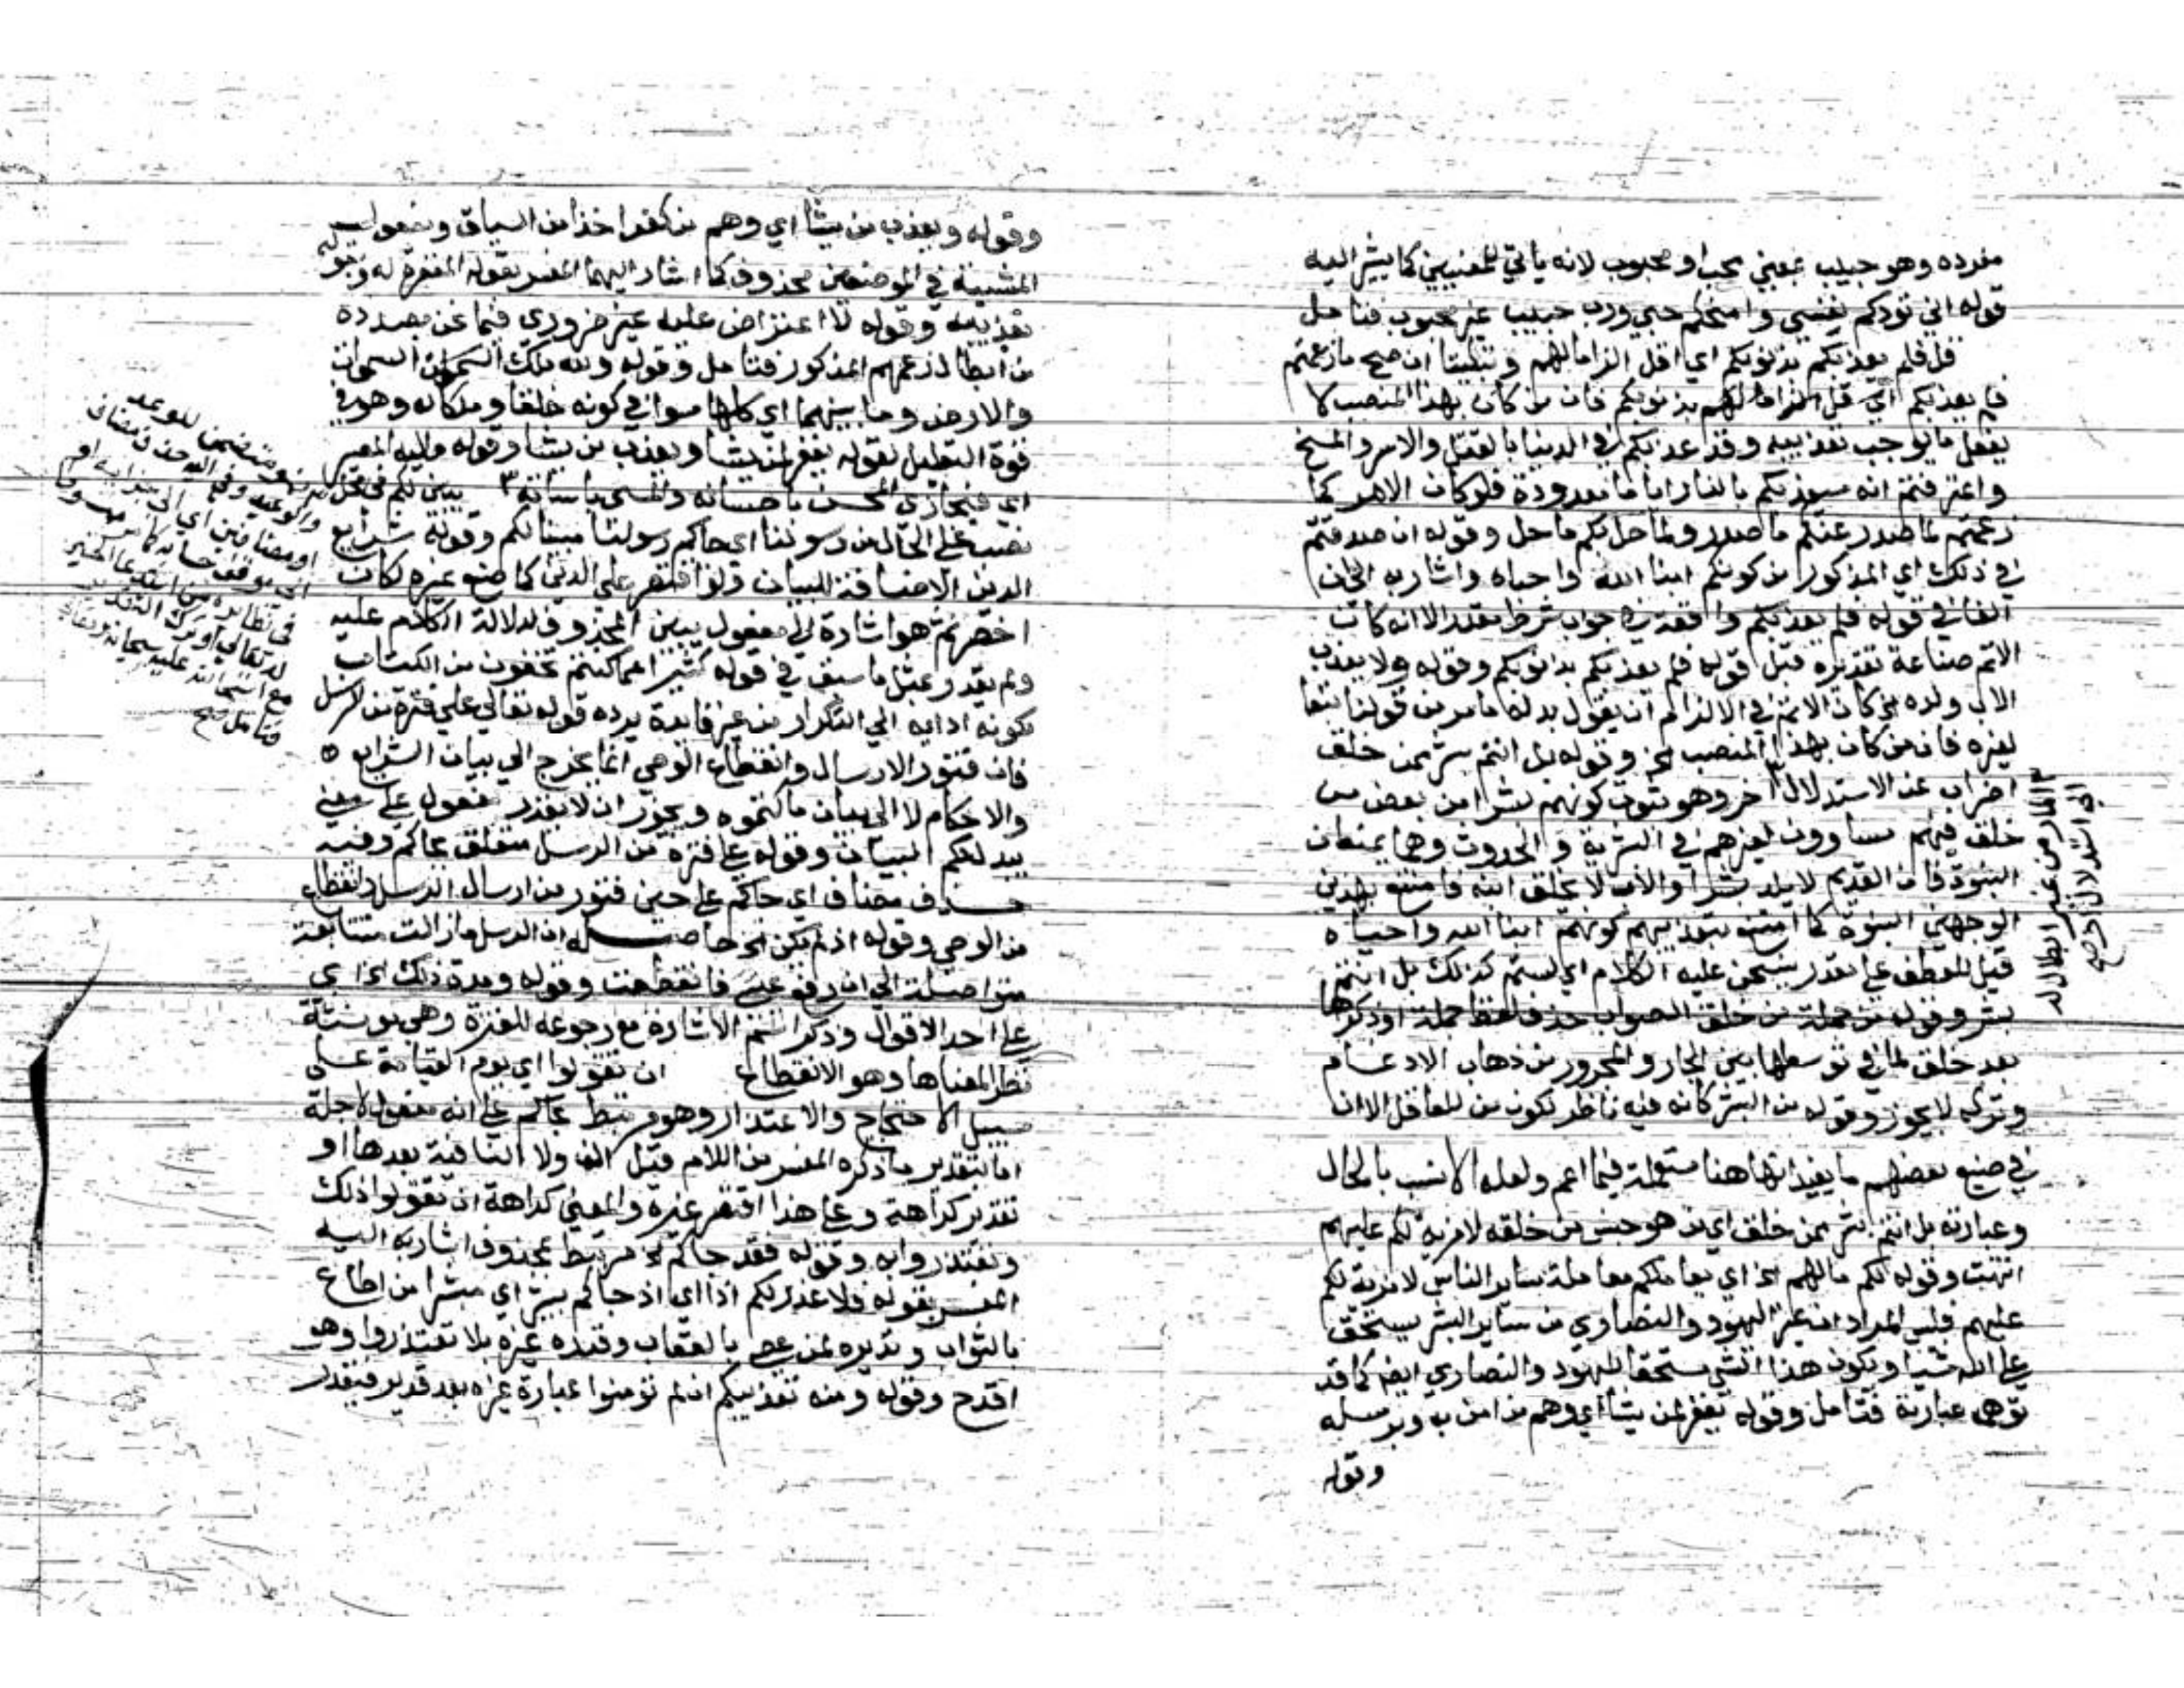 مفرده وهو حبيب بمعني محب او محبوب لانه ياتي للمعنيين كما يشير اليه
قوله اني تودكم نفسي وامنحكم حبي ورب حبيب غير محبوب فتامل
قل فلم يعذبكم بذنوبكم اي اقل الزاما لهم وتبكيتا ان صح ما زعمتم
فلم يعذبكم اي قل الزاما لهم بذنوبكم فان من كان بهذا المنصب لا
يفعل ما يوجب تعذيبه وقد عذبكم في الدنيا بالقتل والاسر والمسخ
واعترفتم انه سيعذبكم بالنار اياما معدودة فلو كان الامر كما
زعمتم لما صدر عنكم ما صدر ولما حل بكم ما حل وقوله ان صدقتم
في ذلك اي المذكور من كونكم ابنا الله واحباه واشار به الي ان
الفا في قوله فلم يعذبكم واقعة في جواب شرط مقدر الا انه كان
الاتم صناعة تقديره قبل قوله فلم يعذبكم بذنوبكم وقوله ولا يعذب
الاب ولده الخ كان الاتم في الالزام ان يقول بدله ما مر من قولنا تبعا
لغيره فان من كان بهذا المنصب الخ وقوله بل انتم بشر ممن خلق
اضراب عن الاستدلال اخر وهو ثبوت كونهم بشرا من بعض من
خلق فهم مساوون لغيرهم في البشرية والحدوث وهما يمنعان
البنوة فان القديم لا يلد بشرا والاب لا يخلق ابنه فامتنع بهذين
الوجهين البنوة كما امتنع بتعذيبهم كونهم ابنا الله واحباه
قيل للعطف علي مقدر ينسحق عليه الكلام اي لستم كذلك بل انتم
بشر وقوله من جملة من خلق الصواب حذف لفظ جملة او ذكرها
بعد خلق لما في توسطها بين الجار والمجرور من ذهاب الادغام
وتركه لا يجوز وقوله من البشر كانه فيه ناظر لكون من للعاقل الا ان
في صنيع بعضهم ما يفيد انها هنا مستعملة فيما اعم ولعله الانسب بالحال
وعبارته بل انتم بشر ممن خلق اي من هو جنس من خلقه لا مزية لكم عليهم
انتهت وقوله لكم ما لهم الخ اي يعاملكم معاملة ساير الناس لا مزية لكم
عليهم فليس المراد ان غير اليهود والنصاري من ساير البشر يستحق
علي الله شيا ويكون هذا الشي مستحقا لليهود والنصاري ايضا كما قد
توهم عبارته فتامل وقوله يغفر لمن يشا اي وهم من امن به وبرسله
وقوله
الي استدلال اخر صح
وقوله ويعذب من يشا اي وهم من كفر اخذا من السياق ومفعول
المشيئة في الموضعين محذوف كما اشار اليهما المفسر بقوله المغفرة له وبقوله
تعذيبه وقوله لا اعتراض عليه غير ضروري فيما نحن بصدده
من ابطال زعمهم المذكور فتامل وقوله ولله ملك السموات
والارض وما بينهما اي كلها سوا في كونه خلقا وملكا له وهو في
قوة التعليل لقوله يغفر لمن يشا ويعذب من يشا وقوله واليه المصير
اي فيجازي المحسن باحسانه والمسي باساته يبين لكم في محل
نصب علي الحال من رسولنا اي جاكم رسولنا مبينا لكم وقوله شرايع
الدين الاضافة للبيان ولو اقتصر علي الدين كما صنع غيره لكان
اخصر ثم هو اشارة الي مفعول يبين المحذوف لدلالة الكلام عليه
ولم يقدر بمثل ما سبق في قوله كثيرا مما كنتم تخفون من الكتاب
لكونه ادايه الي التكرار من غير فايدة يرده قوله تعالي علي فترة من الرسل
فان فتور الارسال وانقطاع الوحي انما يحوج الي بيان الشرايع
والاحكام لا الي بيان ما كتموه ويجوز ان لا يقدر مفعول علي معني
يبذل لكم البيان وقوله علي فترة من الرسل متعلق بجاكم وفيه
حذف مضاف اي جاكم علي حين فتور من ارسال الرسل وانقطاع
من الوحي وقوله اذ لم يكن الخ حاصله ان الرسل ما زالت متتابعة
متواصلة الي ان رفع عيسي فانقطعت وقوله ومدة ذلك الخ اي
علي احد الاقوال وذكر اسم الاشارة مع رجوعه للفترة وهي مونثة
نظرا لمعناها وهو الانقطاع ان تقولوا اي يوم القيامة علي
سبيل الاحتجاج والاعتذار وهو مرتبط بجاكم علي انه مفعول لاجله
اما بتقدير ما ذكره المفسر من اللام قبل الف ولا النافية بعدها او
تقدير كراهة وعلي هذا اقتصر غيره والمعني كراهة ان تقولوا ذلك
وتعتذروا به وقوله فقد جاكم الخ مرتبط بمحذوف اشار به اليه
المفسر بقوله فلا عذر لكم اذا اي اذ جاكم بشير اي مبشرا من اطاع
بالثواب ونذيره لمن عصي بالعقاب وقدره غيره بلا تعتذروا وهو
اقدح وقوله ومنه تعذيبكم ان لم تومنوا عبارة غيره بعد قدير فيقدر